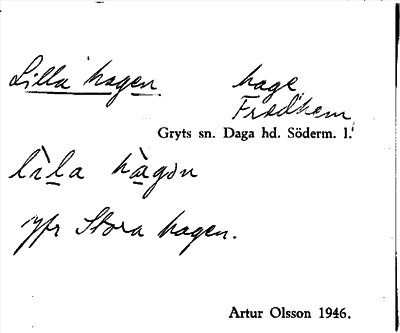 Lilla hagen hage
Fridhem
Gryts sn. Daga hd. Söderm. l.
lìla hàgən
Jfr Stora hagen.
Artur Olsson 1946.